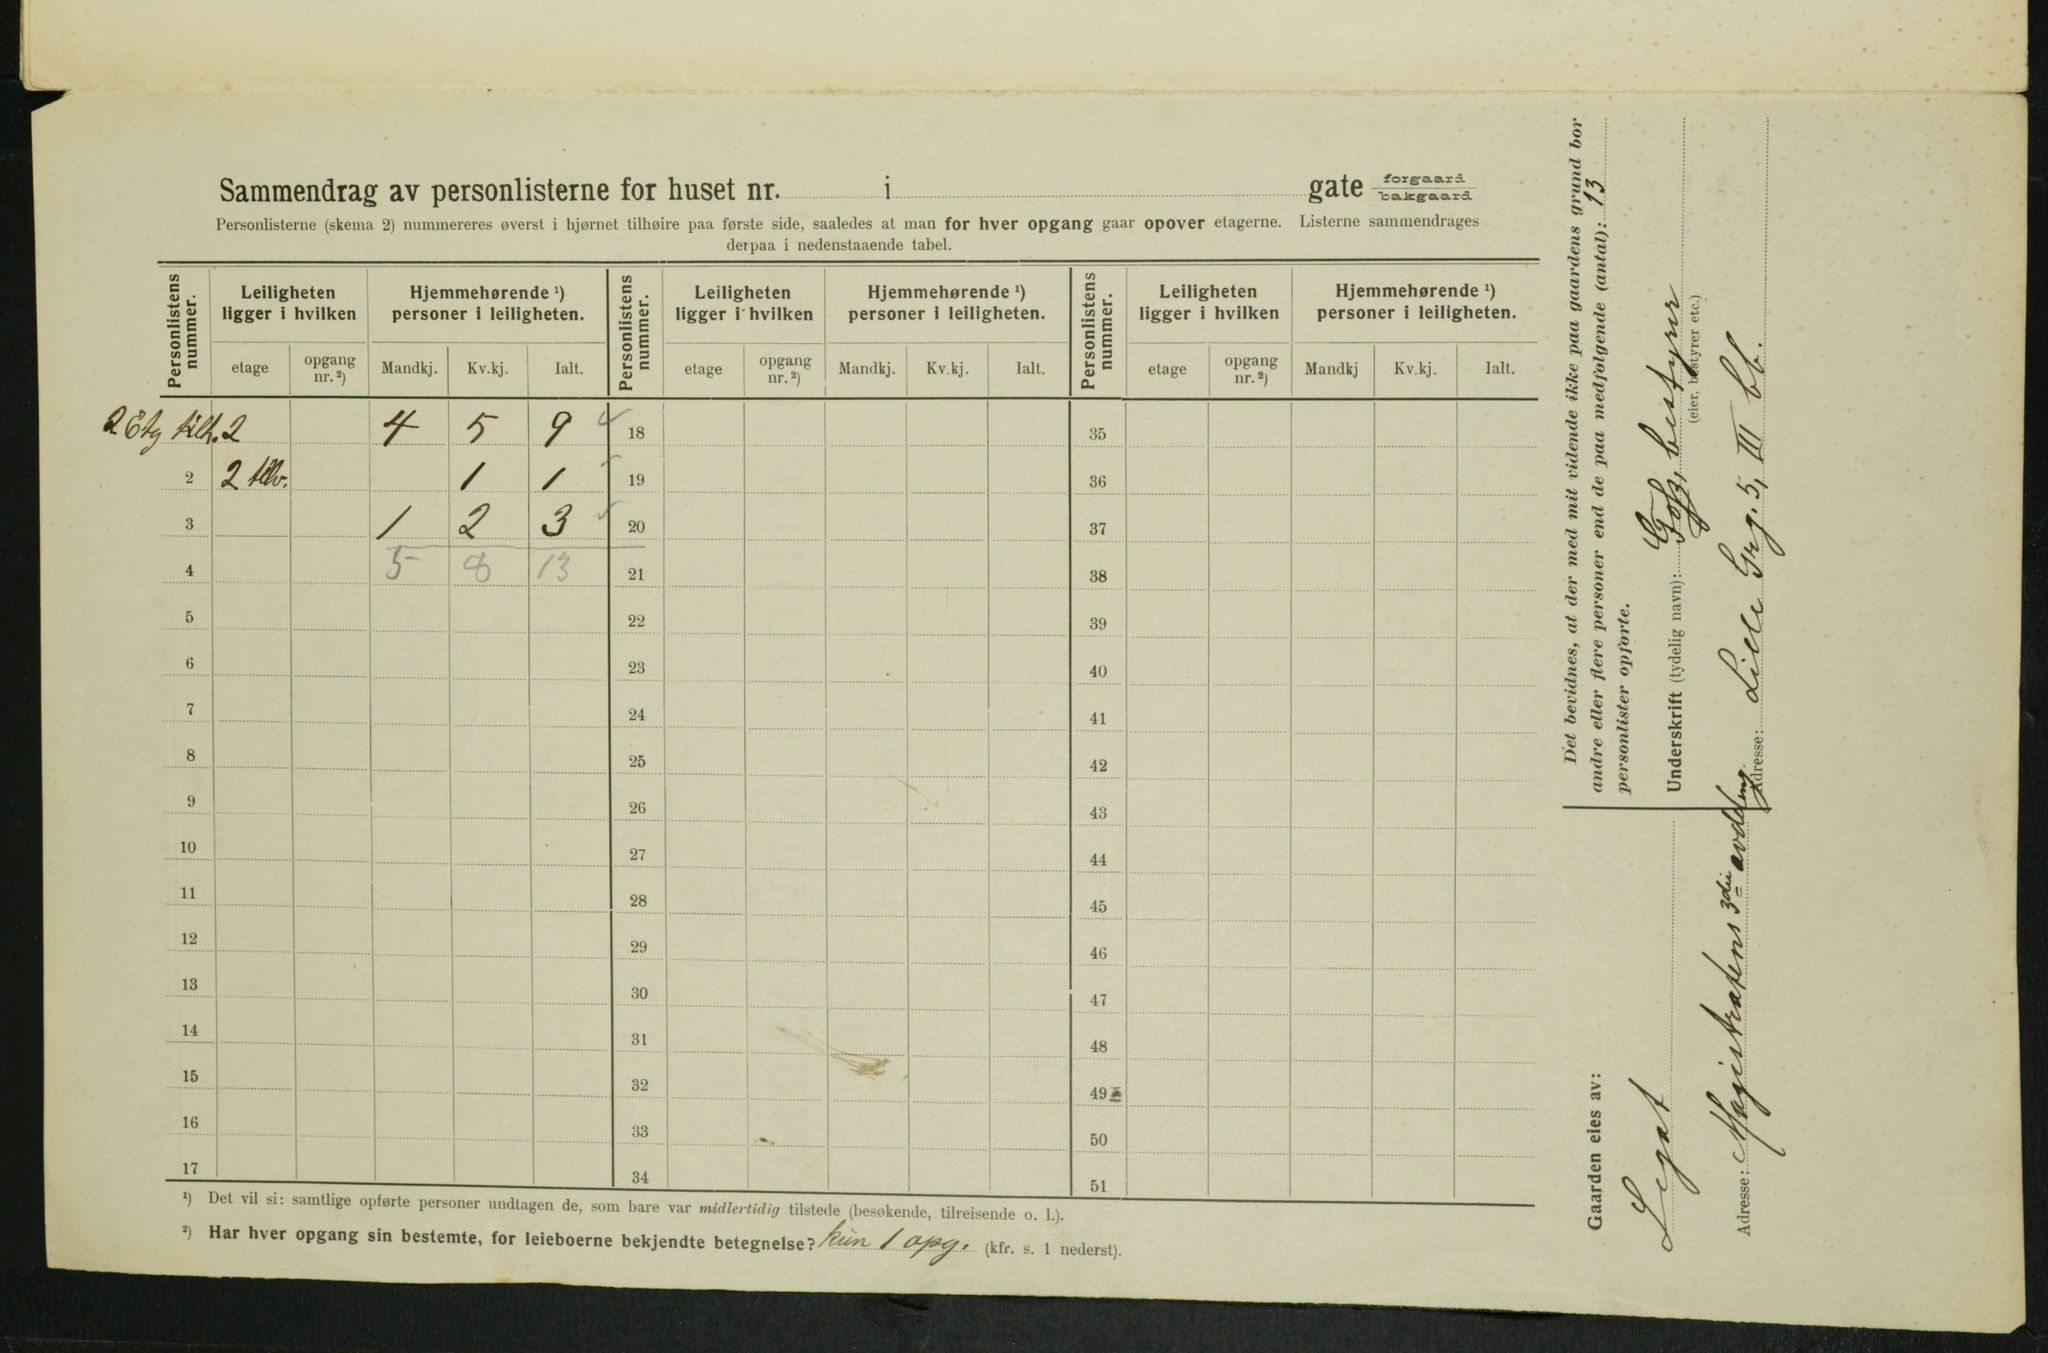 Sammendrag av personlisterne for huset nr. i gate forgaard bakgaard
Personlisterne (skema 2) nummereres øverst i hjørnet tilhøire paa første side, saaledes at man for hver opgang gaar opover etagerne. Listerne sammendrages
derpaa i nedenstaaende tabel.
Personlistens nummer. Leiligheten ligger i hvilken Hjemmehørende ¹) personer i leiligheten. Personlistens nummer. Leiligheten ligger i hvilken Hjemmehørende ¹) personer i leiligheten. Personlistens nummer. Leiligheten ligger i hvilken Hjemmehørende ¹) personer i leiligheten.
etage opgang nr. ²) Mandkj. Kv.kj. Ialt. etage opgang nr. ²) Mandkj. Kv.kj. Ialt. etage opgang nr. ²) Mandkj Kv.kj. Ialt.
2 Etg 2 4 5 9 18 35
2 2 1 1 19 36
3 1 2 3 20 37
4 5 8 13 21 38
5 22 39
6 23 40
7 24 41
8 25 42
9 26 43
10 27 44
11 28 45
12 29 46
13 30 47
14 31 48
15 32 49
16 33 50
17 34 51
¹) Det vil si: samtlige opførte personer undtagen de, som bare var midlertidig tilstede (besøkende, tilreisende o. l.).
²) Har hver opgang sin bestemte, for leieboerne bekjendte betegnelse? kun 1 opg. (kfr. s. 1 nederst).
Det bevidnes, at der med mit vidende ikke paa gaardens grund bor
andre eller flere personer end de paa medfølgende (antal): 13
personlister opførte.
Underskrift (tydelig navn): bestyrer
(eier, bestyrer etc.)
Adresse: Lille Grg. 5, III bb.
Gaarden eies av:
Legat
Adresse: Magistratens 3die avdeling